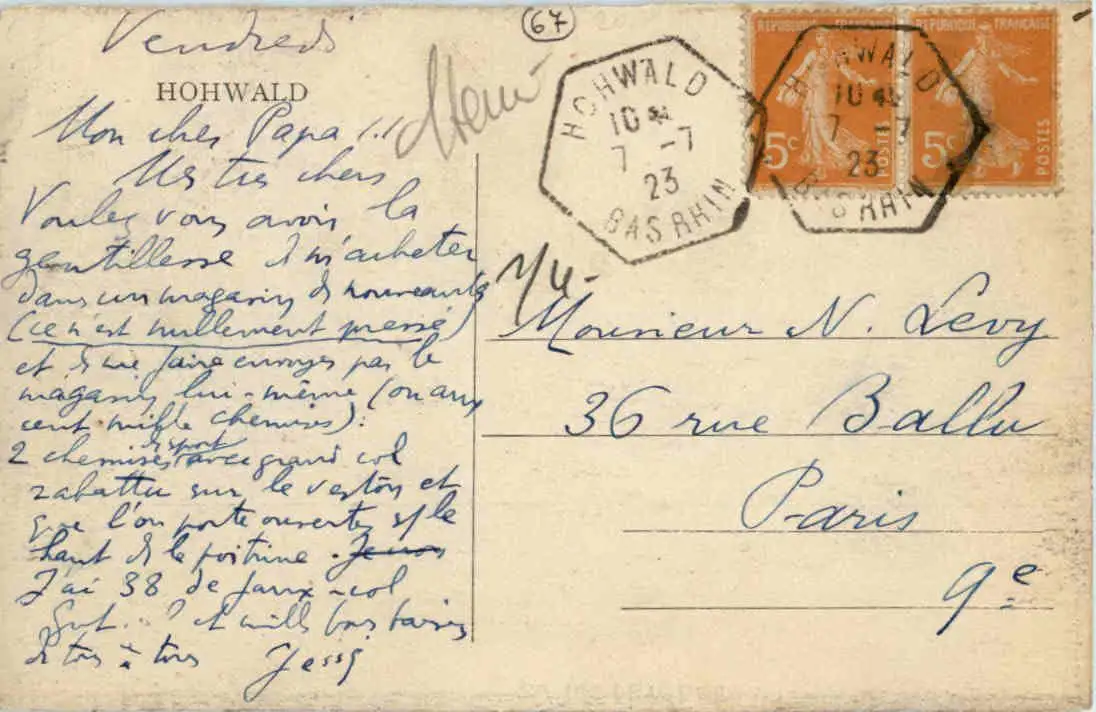 Vendredi
67
HOHWALD
Mon cher Papa !!
Mes très chers
Voulez vous avoir la
gentillesse de m'acheter
dans un magasin de nouveautés
(ce n'est nullement pressé)
et de me faire envoyer par le
magasin lui-même (ou aux
cent mille chemises):
2 chemises de sport avec grand col
rabattu sur le veston et
que l'on porte ouvertes s/ le
haut de la poitrine.
J'ai 38 de faux-col
et mille bons baisers
de tous à tous
HOHWALD
10
7 -7
23
BAS RHIN
REPUBLIQUE FRANÇAISE
5c
POSTES
HOHWALD
10
7 -7
23
BAS RHIN
REPUBLIQUE FRANÇAISE
5c
POSTES
Monsieur N. Levy
36 rue Ballu
Paris
9e